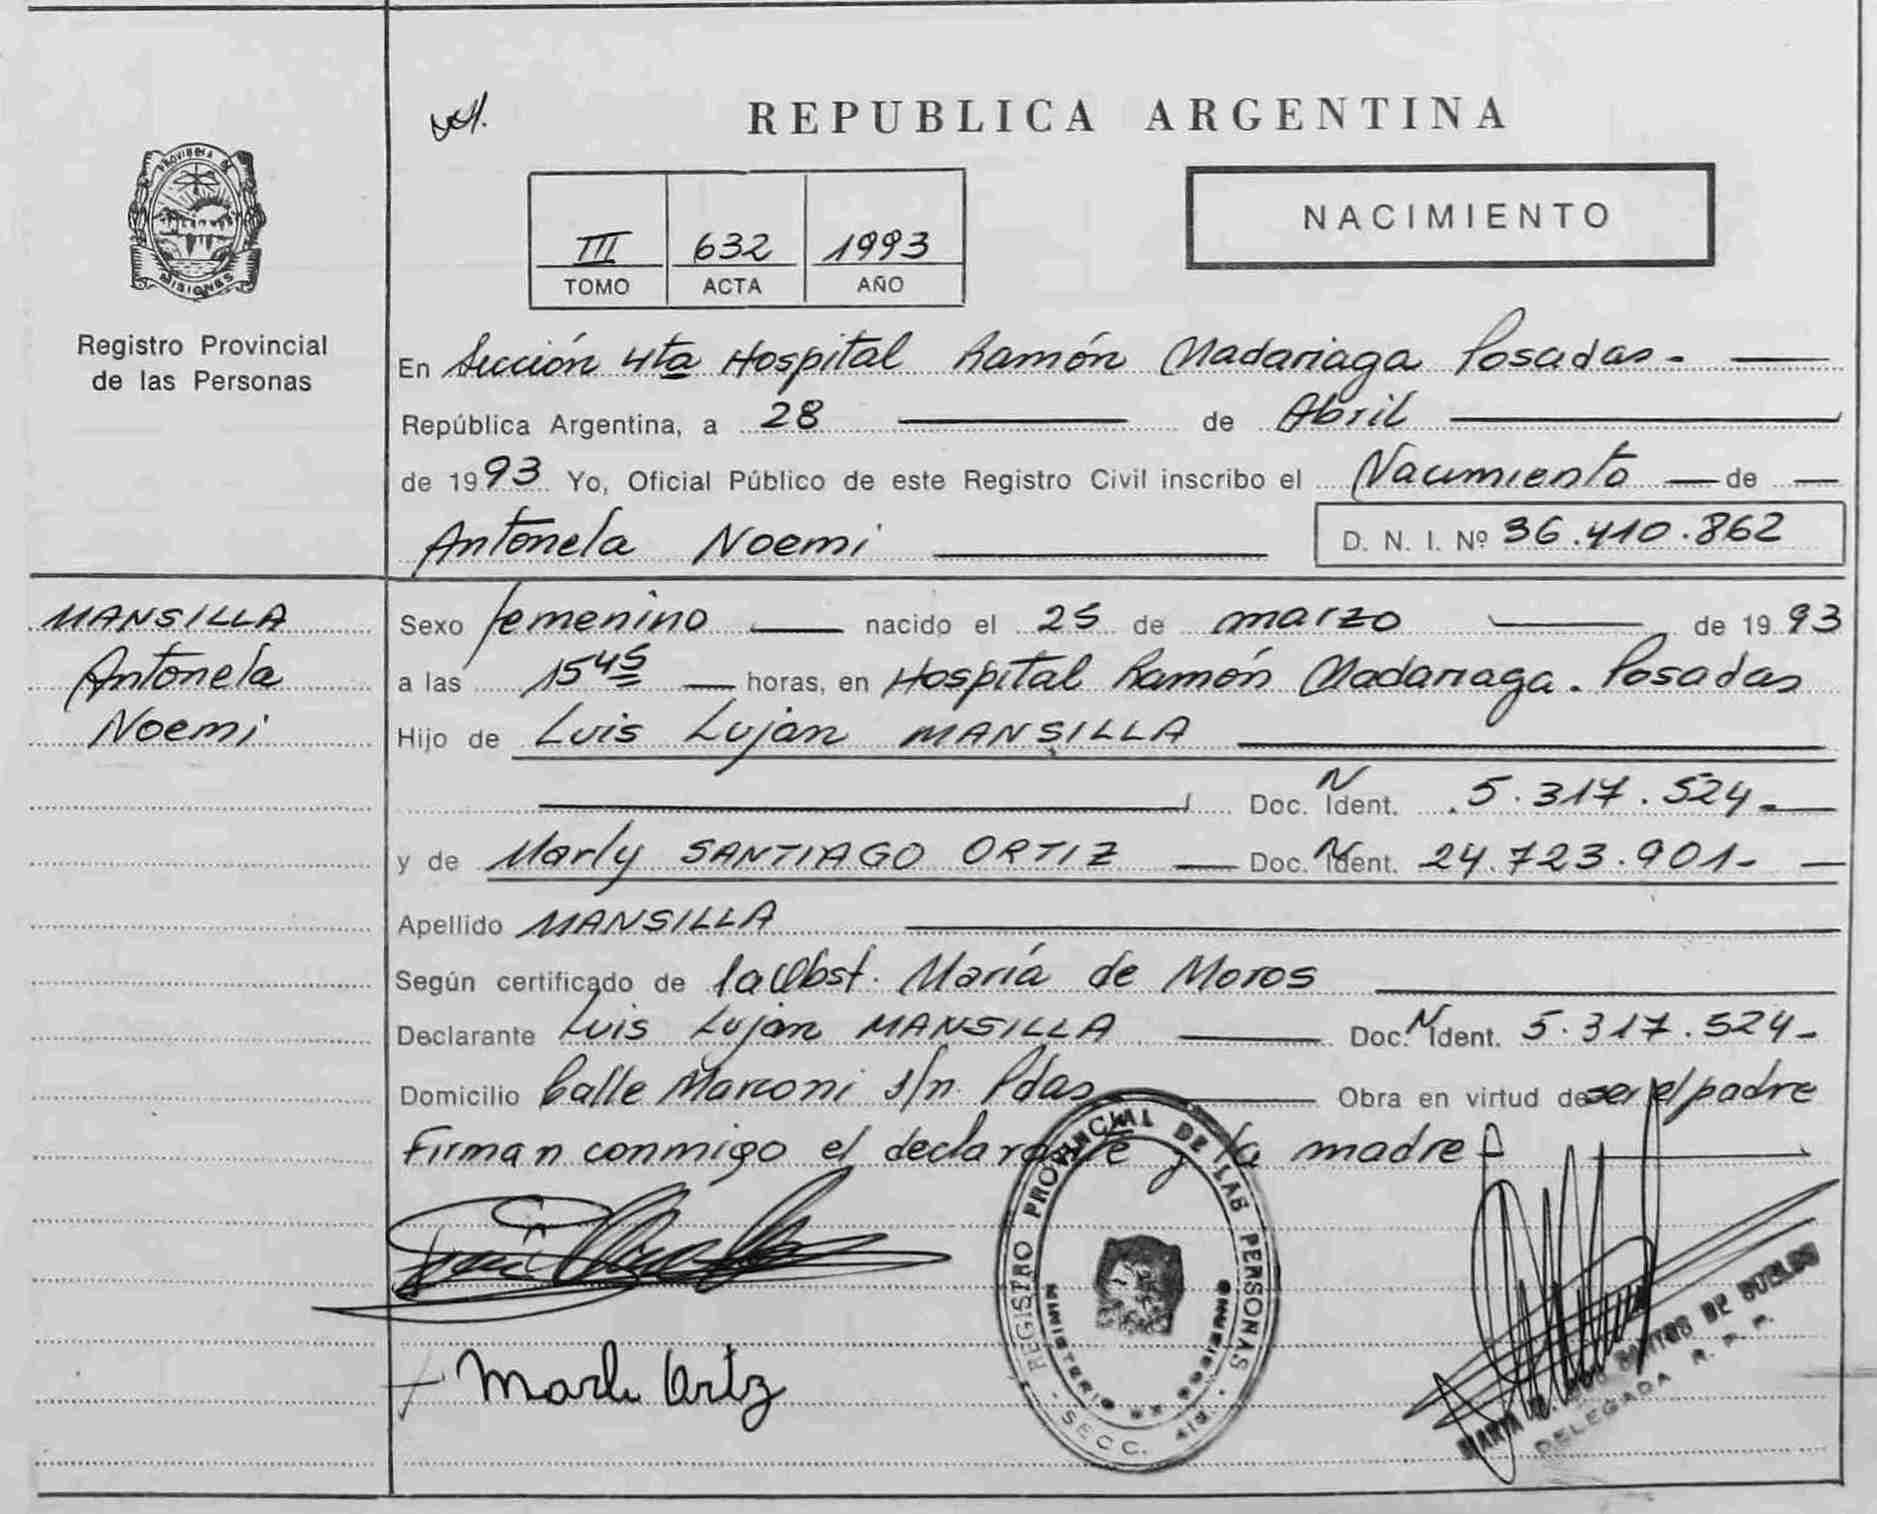 REPUBLICA ARGENTINA
PROVINCIA DE
MISIONES
Registro Provincial
de las Personas
III 632 1993
TOMO ACTA AÑO
NACIMIENTO
En Sección 4ta Hospital Ramón Madariaga Posadas.-
República Argentina, a 28 de Abril
de 1993 Yo, Oficial Público de este Registro Civil inscribo el Nacimiento de
Antonela Noemi
D. N. I. Nº 36.410.862
MANSILLA
Antonela
Noemi
Sexo femenino nacido el 25 de marzo de 1993
a las 15 45 horas, en Hospital Ramón Madariaga. Posadas
Hijo de Luis Lujan MANSILLA
Doc. N Ident. 5.317.524-
y de Marly SANTIAGO ORTIZ Doc. N Ident. 24.723.901-
Apellido MANSILLA
Según certificado de la Obst. María de Moros
Declarante Luis Lujan MANSILLA Doc. N Ident. 5.317.524-
Domicilio Calle Marconi s/n Pdas Obra en virtud de ser el padre
Firman conmigo el declarante y la madre
REGISTRO PROVINCIAL DE LAS PERSONAS
MINISTERIO DE GOBIERNO
SECC. 4ta.
Marli Ortz
MARIA SANTOS DE BUELOS
DELEGADA R. P. P.